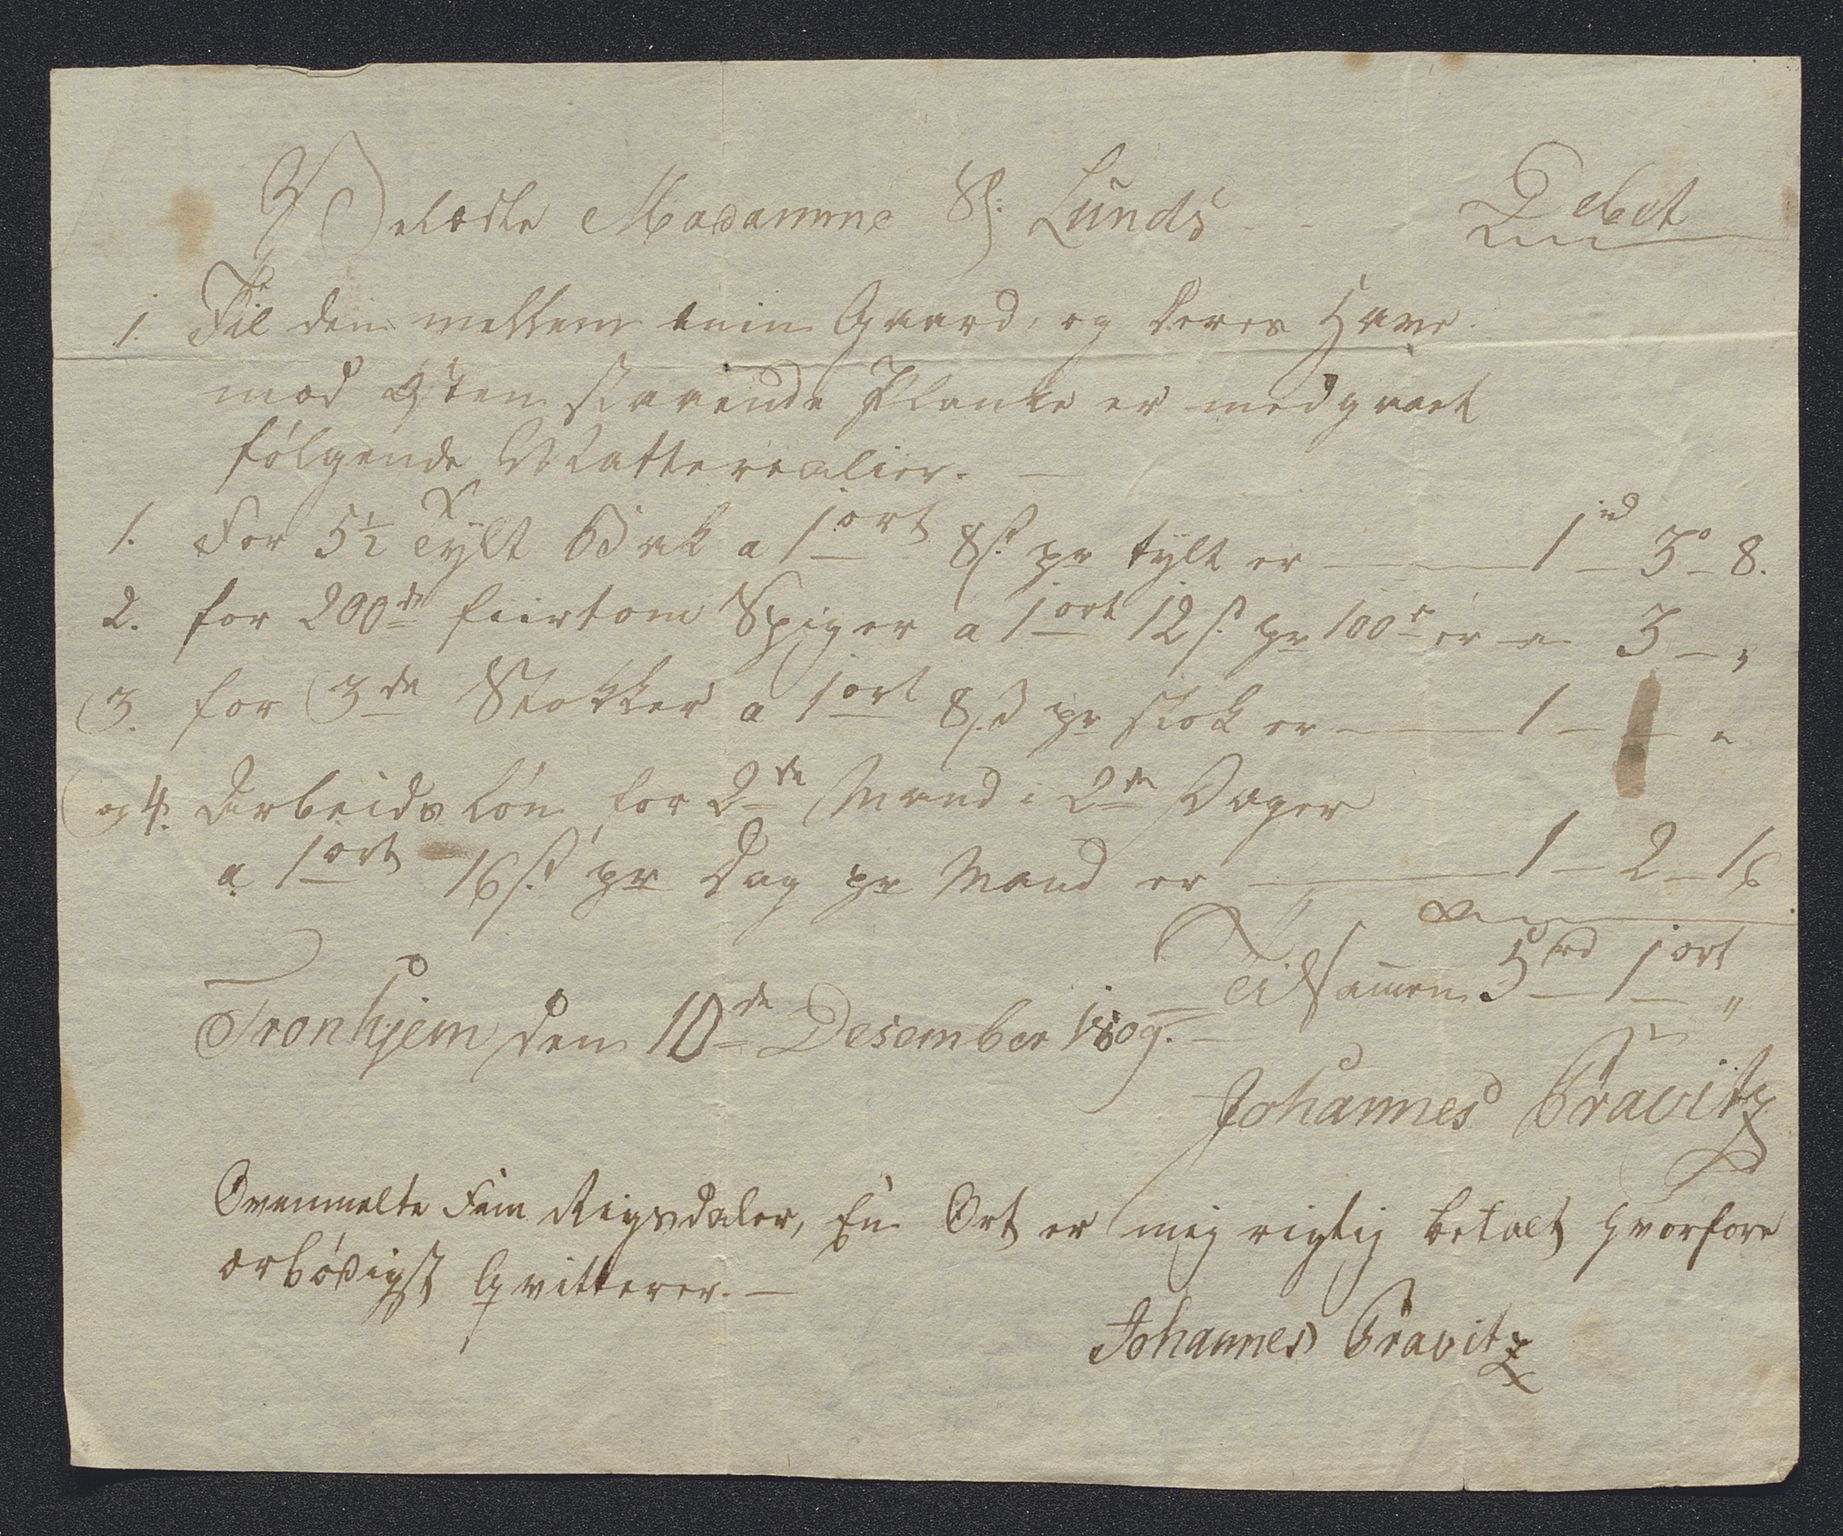 Velædle Madamme Sl: Lunds Debet
1. Til den mellem min Gaard, og deres Have
mod østen staaende Planke er medgaaet
følgende Matterealier. —
1. For 5½ Tylt Bak a 1 ort 8 s. pr tylt er — 1 rd — 3 o — 8.
2. for 200de fiirtom Spiger a 1 ort 12 s. pr 100r er — " 3 — „
3. for 3de Stokker a 1 ort 8 s. pr stok er — 1 — — "
og 4. Arbeids Løn for 2de Mand i 2de Dager
a 1 ort 16 s. pr Dag pr Mand er — 1 — 2 — 16
Tilsamen 5 rd — 1 ort — „
Tronhjem den 10de Desember 1809. —
Johannes Cravitz
Ovenmelte Fem Rigsdaler, En Ort er mig rigtig betalt hvorfore
ærbødigst Qvitterer. —
Johannes Cravitz